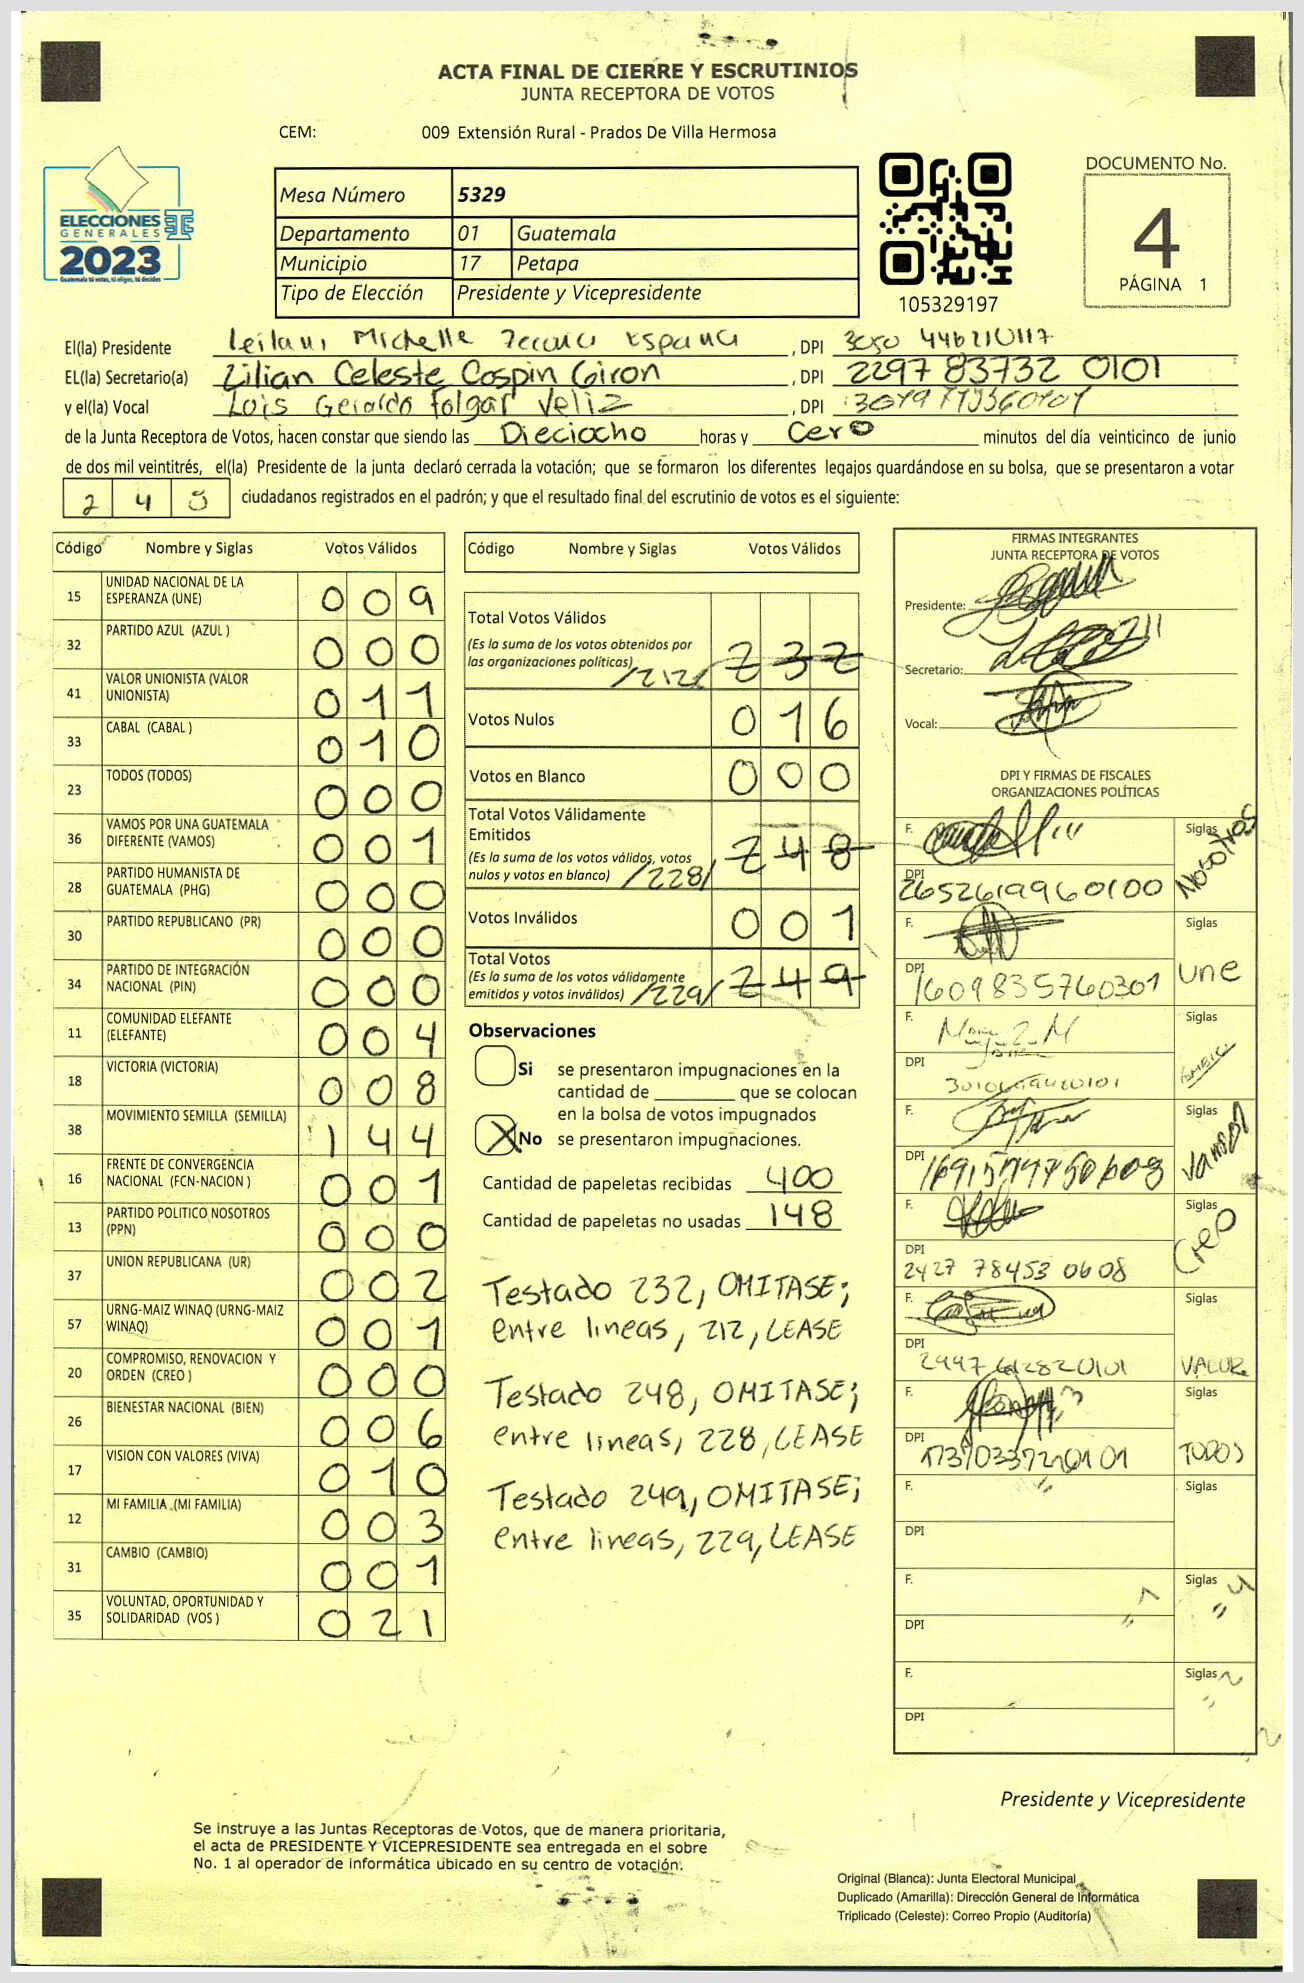 ACTA FINAL DE CIERRE Y ESCRUTINIOS
JUNTA RECEPTORA DE VOTOS
CEM: 009 Extensión Rural - Prados De Villa Hermosa
ELECCIONES
GENERALES
2023
Guatemala tú votas, tú eliges, tú decides
Mesa Número 5329
Departamento 01 Guatemala
Municipio 17 Petapa
Tipo de Elección Presidente y Vicepresidente
105329197
DOCUMENTO No.
4
PÁGINA 1
El(la) Presidente Leilani Michelle España , DPI
EL(la) Secretario(a) Lilian Celeste Cospin Giron , DPI 2297 83732 0101
y el(la) Vocal Luis Geraldo Folgar Veliz , DPI
de la Junta Receptora de Votos, hacen constar que siendo las Dieciocho horas y Cero minutos del día veinticinco de junio
de dos mil veintitrés, el(la) Presidente de la junta declaró cerrada la votación; que se formaron los diferentes legajos guardándose en su bolsa, que se presentaron a votar
2 4 9 ciudadanos registrados en el padrón; y que el resultado final del escrutinio de votos es el siguiente:
Código Nombre y Siglas Votos Válidos
15 UNIDAD NACIONAL DE LA ESPERANZA (UNE) 0 0 9
32 PARTIDO AZUL (AZUL ) 0 0 0
41 VALOR UNIONISTA (VALOR UNIONISTA) 0 1 1
33 CABAL (CABAL ) 0 1 0
23 TODOS (TODOS) 0 0 0
36 VAMOS POR UNA GUATEMALA DIFERENTE (VAMOS) 0 0 1
28 PARTIDO HUMANISTA DE GUATEMALA (PHG) 0 0 0
30 PARTIDO REPUBLICANO (PR) 0 0 0
34 PARTIDO DE INTEGRACIÓN NACIONAL (PIN) 0 0 0
11 COMUNIDAD ELEFANTE (ELEFANTE) 0 0 4
18 VICTORIA (VICTORIA) 0 0 8
38 MOVIMIENTO SEMILLA (SEMILLA) 1 4 4
16 FRENTE DE CONVERGENCIA NACIONAL (FCN-NACION ) 0 0 1
13 PARTIDO POLITICO NOSOTROS (PPN) 0 0 0
37 UNION REPUBLICANA (UR) 0 0 2
57 URNG-MAIZ WINAQ (URNG-MAIZ WINAQ) 0 0 1
20 COMPROMISO, RENOVACION Y ORDEN (CREO ) 0 0 0
26 BIENESTAR NACIONAL (BIEN) 0 0 6
17 VISION CON VALORES (VIVA) 0 1 0
12 MI FAMILIA (MI FAMILIA) 0 0 3
31 CAMBIO (CAMBIO) 0 0 1
35 VOLUNTAD, OPORTUNIDAD Y SOLIDARIDAD (VOS ) 0 2 1
Código Nombre y Siglas Votos Válidos
Total Votos Válidos
(Es la suma de los votos obtenidos por
las organizaciones políticas) /212/ 2 3 2
Votos Nulos 0 1 6
Votos en Blanco 0 0 0
Total Votos Válidamente
Emitidos
(Es la suma de los votos válidos, votos
nulos y votos en blanco) /228/ 2 4 8
Votos Inválidos 0 0 1
Total Votos
(Es la suma de los votos válidamente
emitidos y votos inválidos) /229/ 2 4 9
Observaciones
Si se presentaron impugnaciones en la
cantidad de ________ que se colocan
en la bolsa de votos impugnados
X No se presentaron impugnaciones.
Cantidad de papeletas recibidas 400
Cantidad de papeletas no usadas 148
Testado 232, OMITASE;
entre lineas, 212, LEASE
Testado 248, OMITASE;
entre lineas, 228, LEASE
Testado 249, OMITASE;
entre lineas, 229, LEASE
FIRMAS INTEGRANTES
JUNTA RECEPTORA DE VOTOS
Presidente:
Secretario:
Vocal:
DPI Y FIRMAS DE FISCALES
ORGANIZACIONES POLÍTICAS
F. Siglas Nosotros
DPI 2652619960100
F. Siglas une
DPI 1609835760301
F. Siglas
DPI
F. Siglas vamos
DPI
F. Siglas Creo
DPI 2427 78453 0608
F. Siglas VALOR
DPI
F. Siglas TODOS
DPI
F. Siglas
DPI
F. Siglas
DPI
F. Siglas
DPI
Presidente y Vicepresidente
Se instruye a las Juntas Receptoras de Votos, que de manera prioritaria,
el acta de PRESIDENTE Y VICEPRESIDENTE sea entregada en el sobre
No. 1 al operador de informática ubicado en su centro de votación.
Original (Blanca): Junta Electoral Municipal
Duplicado (Amarilla): Dirección General de Informática
Triplicado (Celeste): Correo Propio (Auditoría)